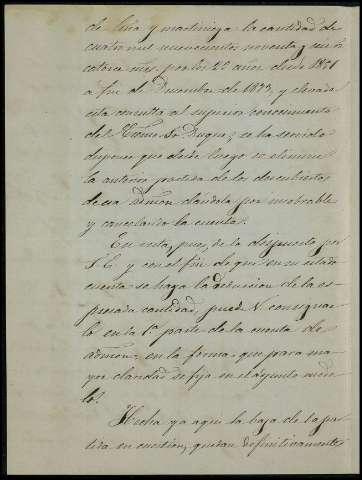 de leña y martiniega la cantidad de
cuatro mil novecientos noventa y seis r.s
catorce mrs, por los 22 años desde 1851
á fin de Diciembre de 1873, y elevada
esta consulta al superior conocimiento
del Excmo Sr Duque, se ha servido
disponer que desde luego se elimine
la anterior partida de los descubiertos
de esa admon dándola por incobrable
y cancelando la cuenta.
En vista, pues, de lo dispuesto por
S. E. y con el fin de que en su estado
cuenta se haga la deducion de la es-
presada cantidad, puede V. consignar-
lo en la 1a parte de la cuenta de
admon, en la forma que para ma-
yor claridad se fija en el adjunto mode-
lo.
Hecha ya aqui la baja de la par-
tida en cuestion, quedan definitivamente